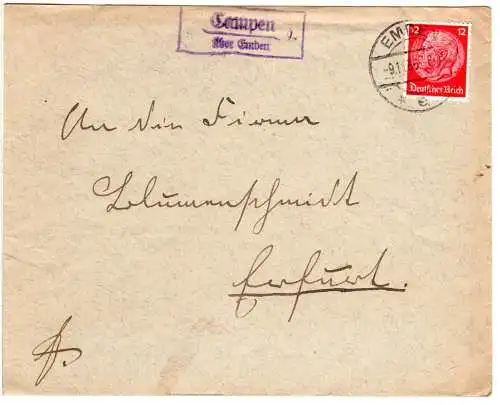 Campen
über Emden
EM
-9.1
12 12
Deutsches Reich
An die Firma
Blumenschmidt
Erfurt.